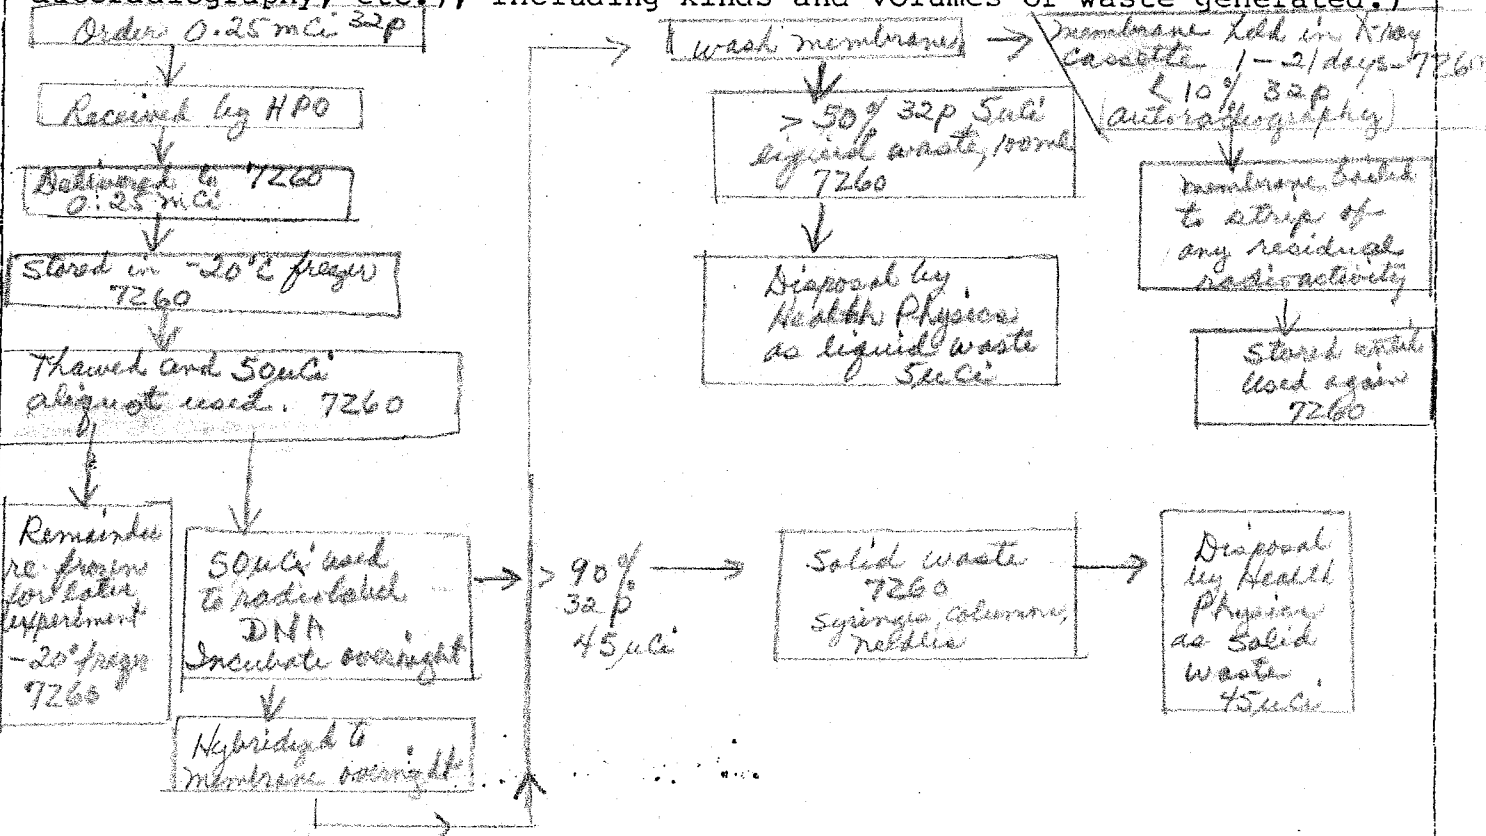 autoradiography, etc.), including kinds and volumes of waste generated.)
Order 0.25 mCi 32p
Received by HPO
Delivered to 7260
0.25 mCi
Stored in -20°C frezer
7260
Thawed and 50uCi
aliquot used. 7260
Remainder
re-frozen
for later
experiment
-20° frezer
7260
50uCi used
to radiolabel
DNA
Incubate overnight
Hybridized to
membrane overnight
> 90%
32p
45uCi
Solid waste
7260
Syringes, columns,
needles
Disposal
by Health
Physics
as solid
waste
45uCi
wash membranes
> 50% 32p 5uCi
liquid waste, 100ml
7260
Disposal by
Health Physics
as liquid waste
5uCi
membrane held in X-ray
cassette 1-21days-7260
< 10% 32p
(autoradiography)
membrane boiled
to strip of
any residual
radioactivity
Stored until
used again
7260